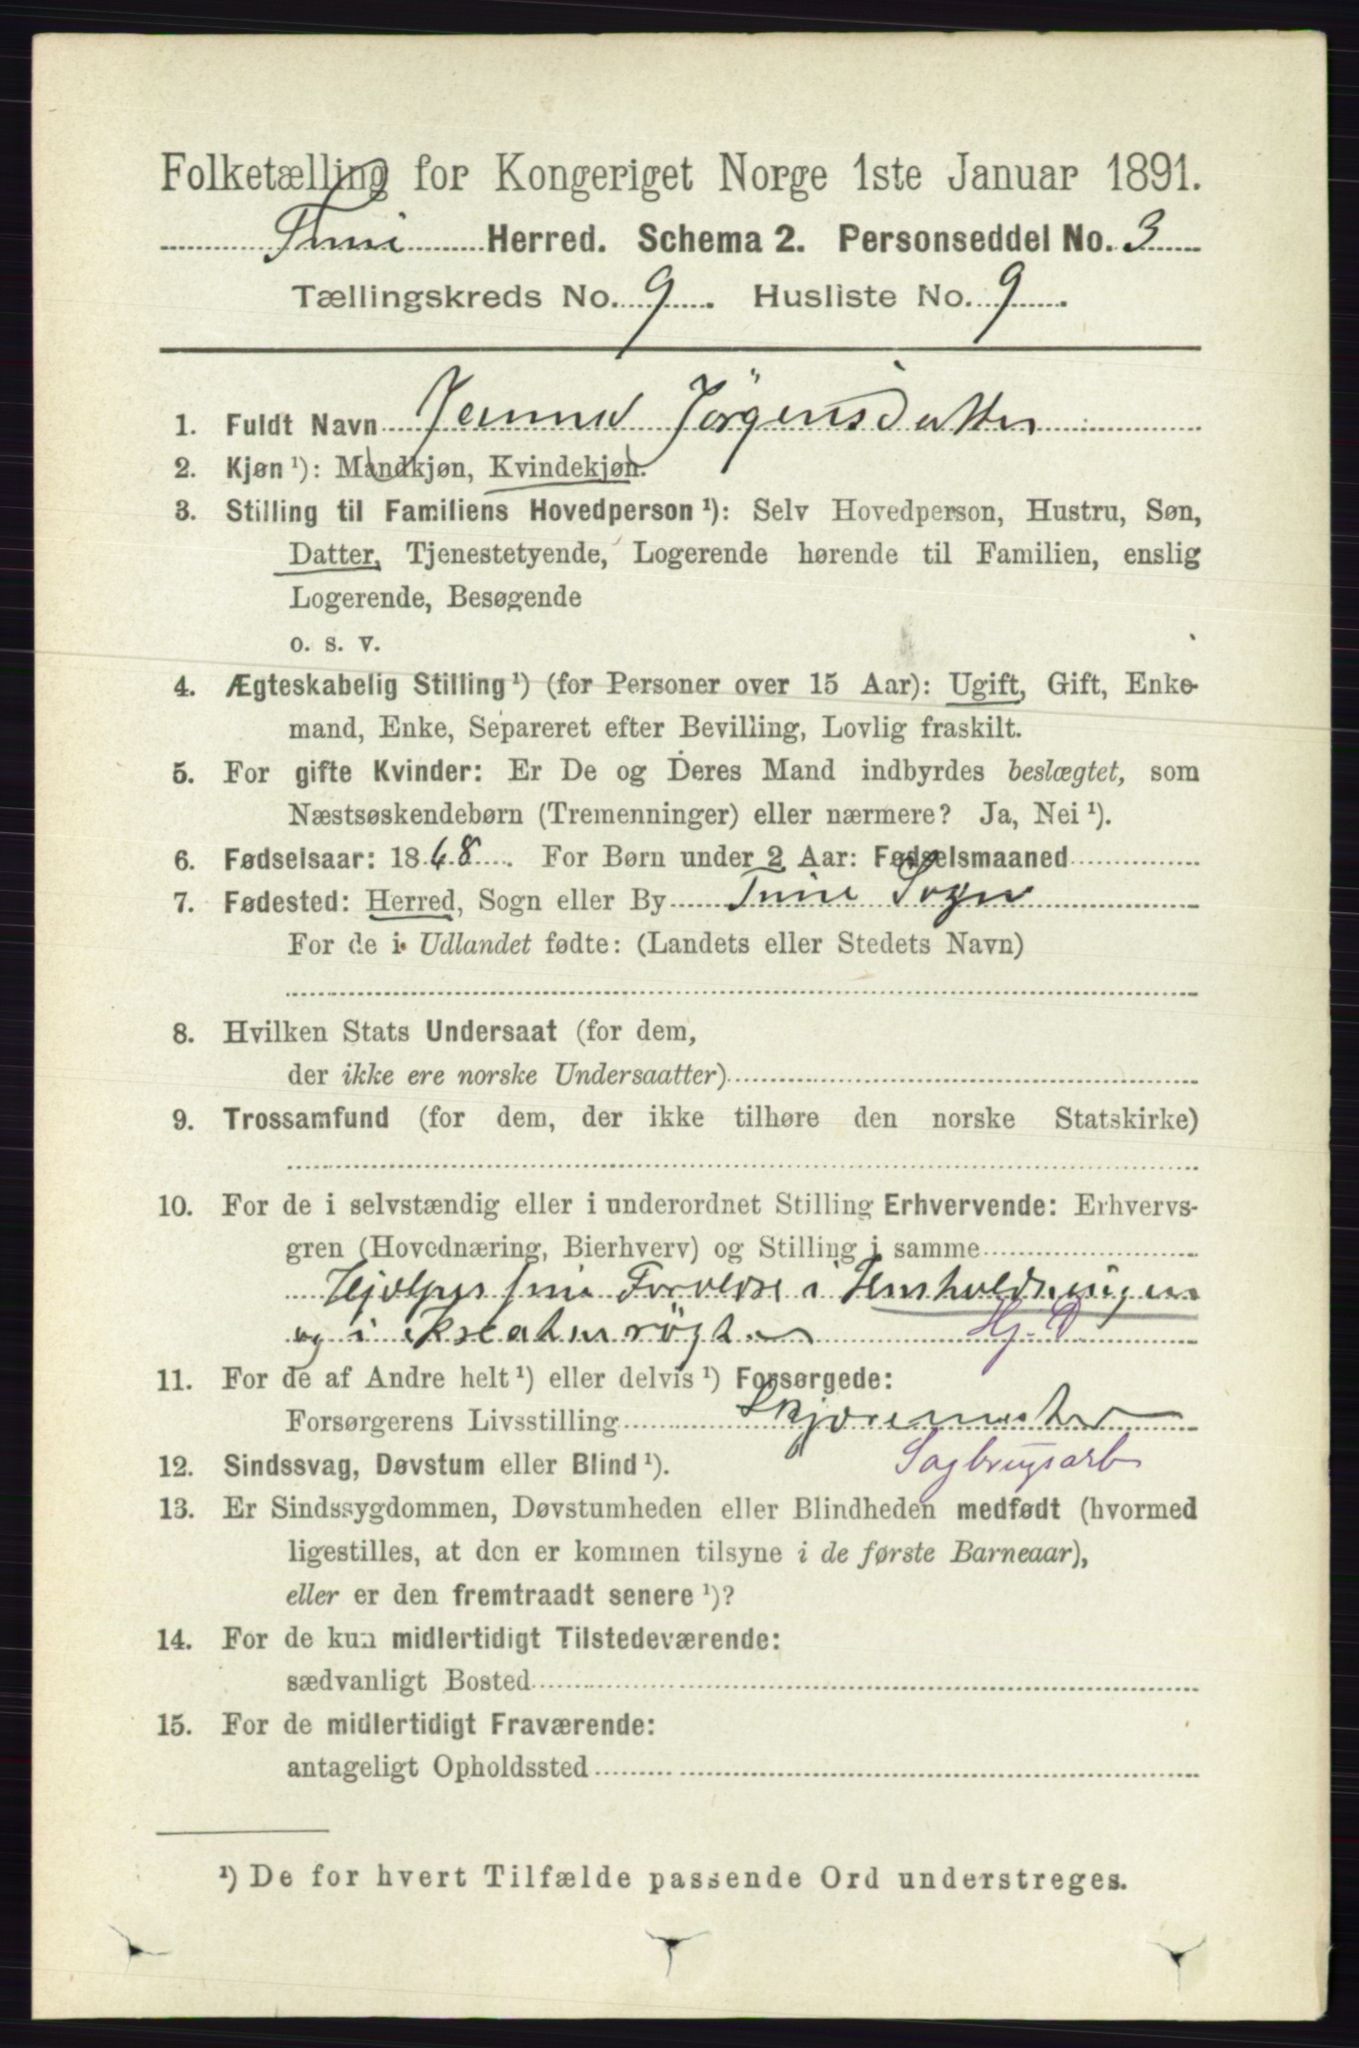 Folketælling for Kongeriget Norge 1ste Januar 1891.
Tune Herred. Schema 2. Personseddel No. 3
Tællingskreds No. 9. Husliste No. 9.
1. Fuldt Navn Jörgensdatter
2. Kjøn ¹): Mandkjøn, Kvindekjøn.
3. Stilling til Familiens Hovedperson ¹): Selv Hovedperson, Hustru, Søn,
Datter, Tjenestetyende, Logerende hørende til Familien, enslig
Logerende, Besøgende
o. s. v.
4. Ægteskabelig Stilling ¹) (for Personer over 15 Aar): Ugift, Gift, Enke-
mand, Enke, Separeret efter Bevilling, Lovlig fraskilt.
5. For gifte Kvinder: Er De og Deres Mand indbyrdes beslægtet, som
Næstsøskendebørn (Tremenninger) eller nærmere? Ja, Nei ¹).
6. Fødselsaar: 1868. For Børn under 2 Aar: Fødselsmaaned
7. Fødested: Herred, Sogn eller By Tune Sogn
For de i Udlandet fødte: (Landets eller Stedets Navn)
8. Hvilken Stats Undersaat (for dem,
der ikke ere norske Undersaatter)
9. Trossamfund (for dem, der ikke tilhøre den norske Statskirke)
10. For de i selvstændig eller i underordnet Stilling Erhvervende: Erhvervs-
gren (Hovednæring, Bierhverv) og Stilling i samme
Hjælper sine Forældre i Husholdningen
og i Kreaturrögten Hj. D.
11. For de af Andre helt ¹) eller delvis ¹) Forsørgede:
Forsørgerens Livsstilling Skjæremester
Sagbrugsarb
12. Sindssvag, Døvstum eller Blind ¹).
13. Er Sindssygdommen, Døvstumheden eller Blindheden medfødt (hvormed
ligestilles, at den er kommen tilsyne i de første Barneaar),
eller er den fremtraadt senere ¹)?
14. For de kun midlertidigt Tilstedeværende:
sædvanligt Bosted
15. For de midlertidigt Fraværende:
antageligt Opholdssted
¹) De for hvert Tilfælde passende Ord understreges.